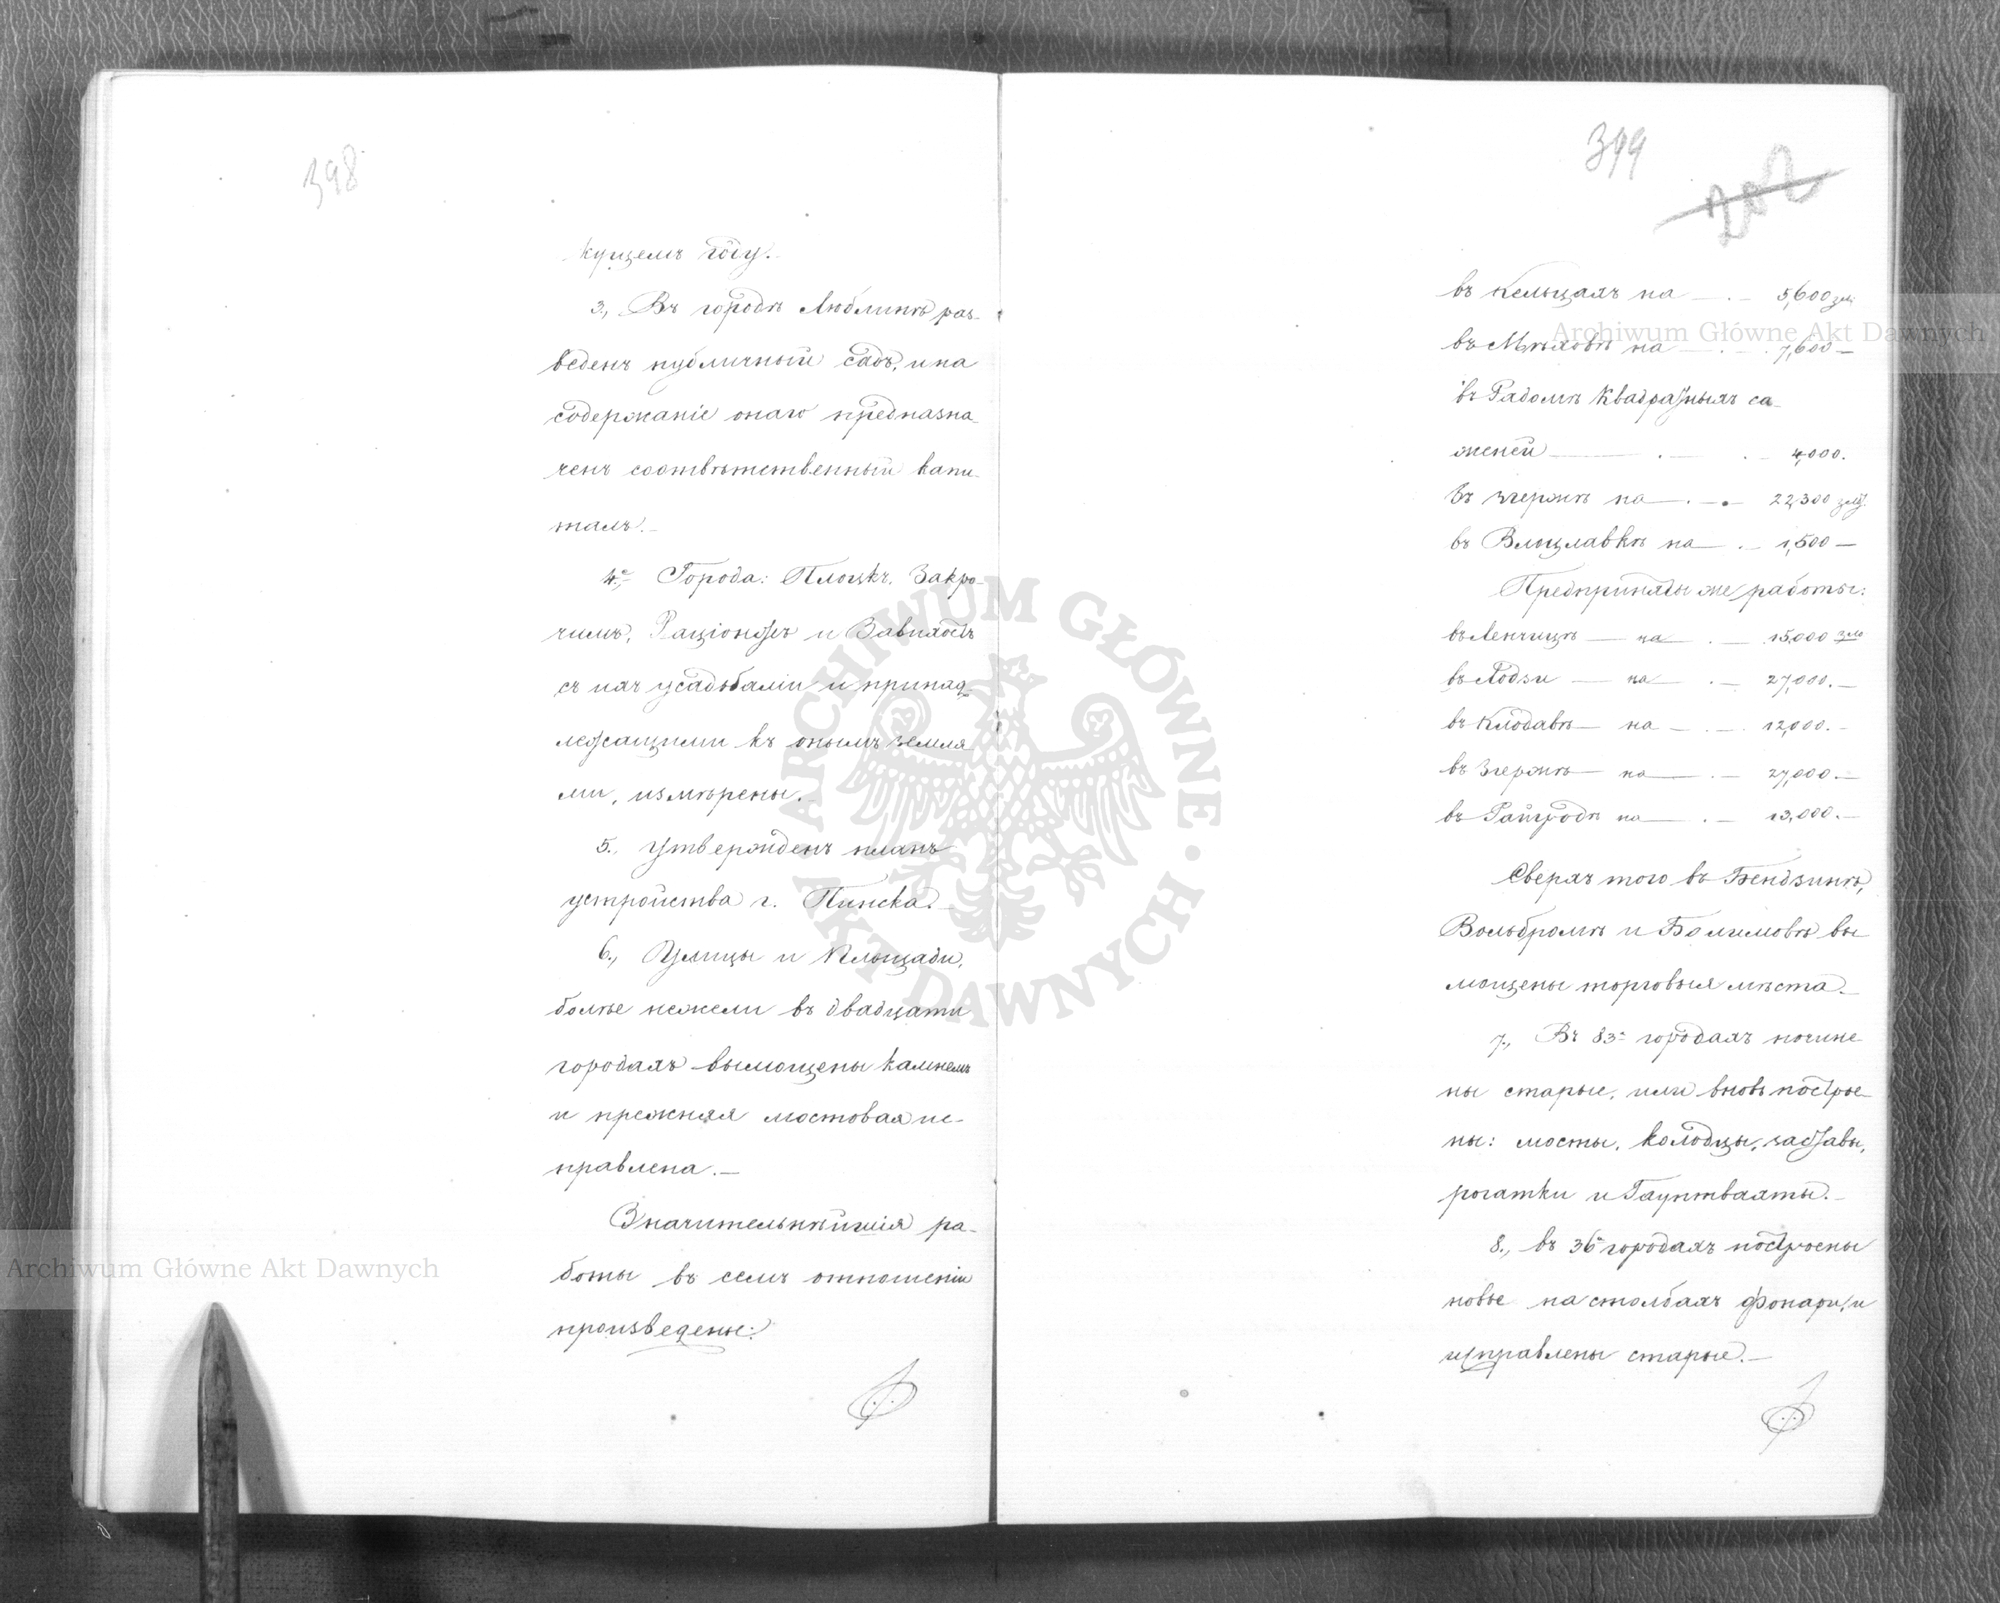 398
кущемъ году.
3., Въ городѣ Люблинѣ раз-
веденъ публичный садъ, и на
содержаніе онаго предназна-
ченъ соотвѣтственный капи-
талъ.-
4е., Города: Плоцкъ, Закро-
чимъ, Раціонжъ и Завихостъ
съ ихъ усадьбами и принад-
лежащими къ онымъ земля-
ми, измѣрены.-
5., Утвержденъ планъ
устройства г. Пинска.-
6., Улицы и Площади,
болѣе нежели въ двадцати
городахъ вымощены камнемъ
и прежняя мостовая ис-
правлена.-
Значительнѣйшія ра-
боты въ семъ отношеніи
произведены:
399
въ Кельцахъ на - 5,600 зл.
въ Мѣховѣ на - 7,600 -
въ Радомѣ квадратныхъ са-
женей - 4,000.
въ Згержѣ на - 22,300 злот.
въ Влоцлавкѣ на - 1,500 -
Предприняты же работы:
въ Ленчицѣ - на - 15,000 зло
въ Лодзи - на - 27,000.-
въ Клодавѣ - на - 12,000.-
въ Згержѣ - на - 27,000.-
въ Райгродѣ на - 13,000.-
Сверхъ того въ Бендзинѣ,
Вольбромѣ и Болимовѣ вы
мощены торговыя мѣста.-
7., Въ 83хъ городахъ почине-
ны старые, или вновь построе-
ны: мосты, колодцы, заставы,
рогатки и Гауптвахты.-
8., въ 36 городахъ построены
новые на столбахъ фонари, и
исправлены старые.-
Archiwum Główne Akt Dawnych
Archiwum Główne Akt Dawnych
ARCHIWUM GŁÓWNE · AKT DAWNYCH ·